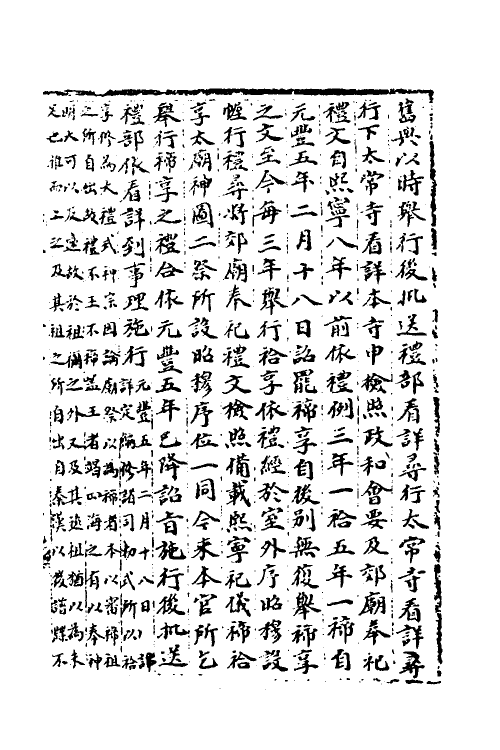 舊典以時舉行後批送禮部看詳尋行太常寺看詳尋
行下太常寺看詳本寺申檢照政和會要及郊廟奉祀
禮文自熙寧八年以前依禮例三年一祫五年一禘自
元豐五年二月十八日詔罷禘享自後別無復舉禘享
之文至今每三年舉行祫享依禮經於室外序昭穆設
幄行禮尋將郊廟奉祀禮文檢照備載熙寧祀儀禘祫
享太廟神圖二祭所設昭穆序位一同今來本官所乞
舉行禘享之禮合依元豐五年已降詔旨施行後批送
禮部依看詳到事理施行元豐五年二月十八日詳定編修諸司勑式所以祫
享修為大禮式神宗因論廟祭以為禘者本以審禘祖
之所自出故禮不王不禘蓋王者竭四海之有以奉神
明大可以及遠故於祖禰之外又及其遠祖猶以為未
足也推而上之及其祖之所自出自秦漢以後譜牒不